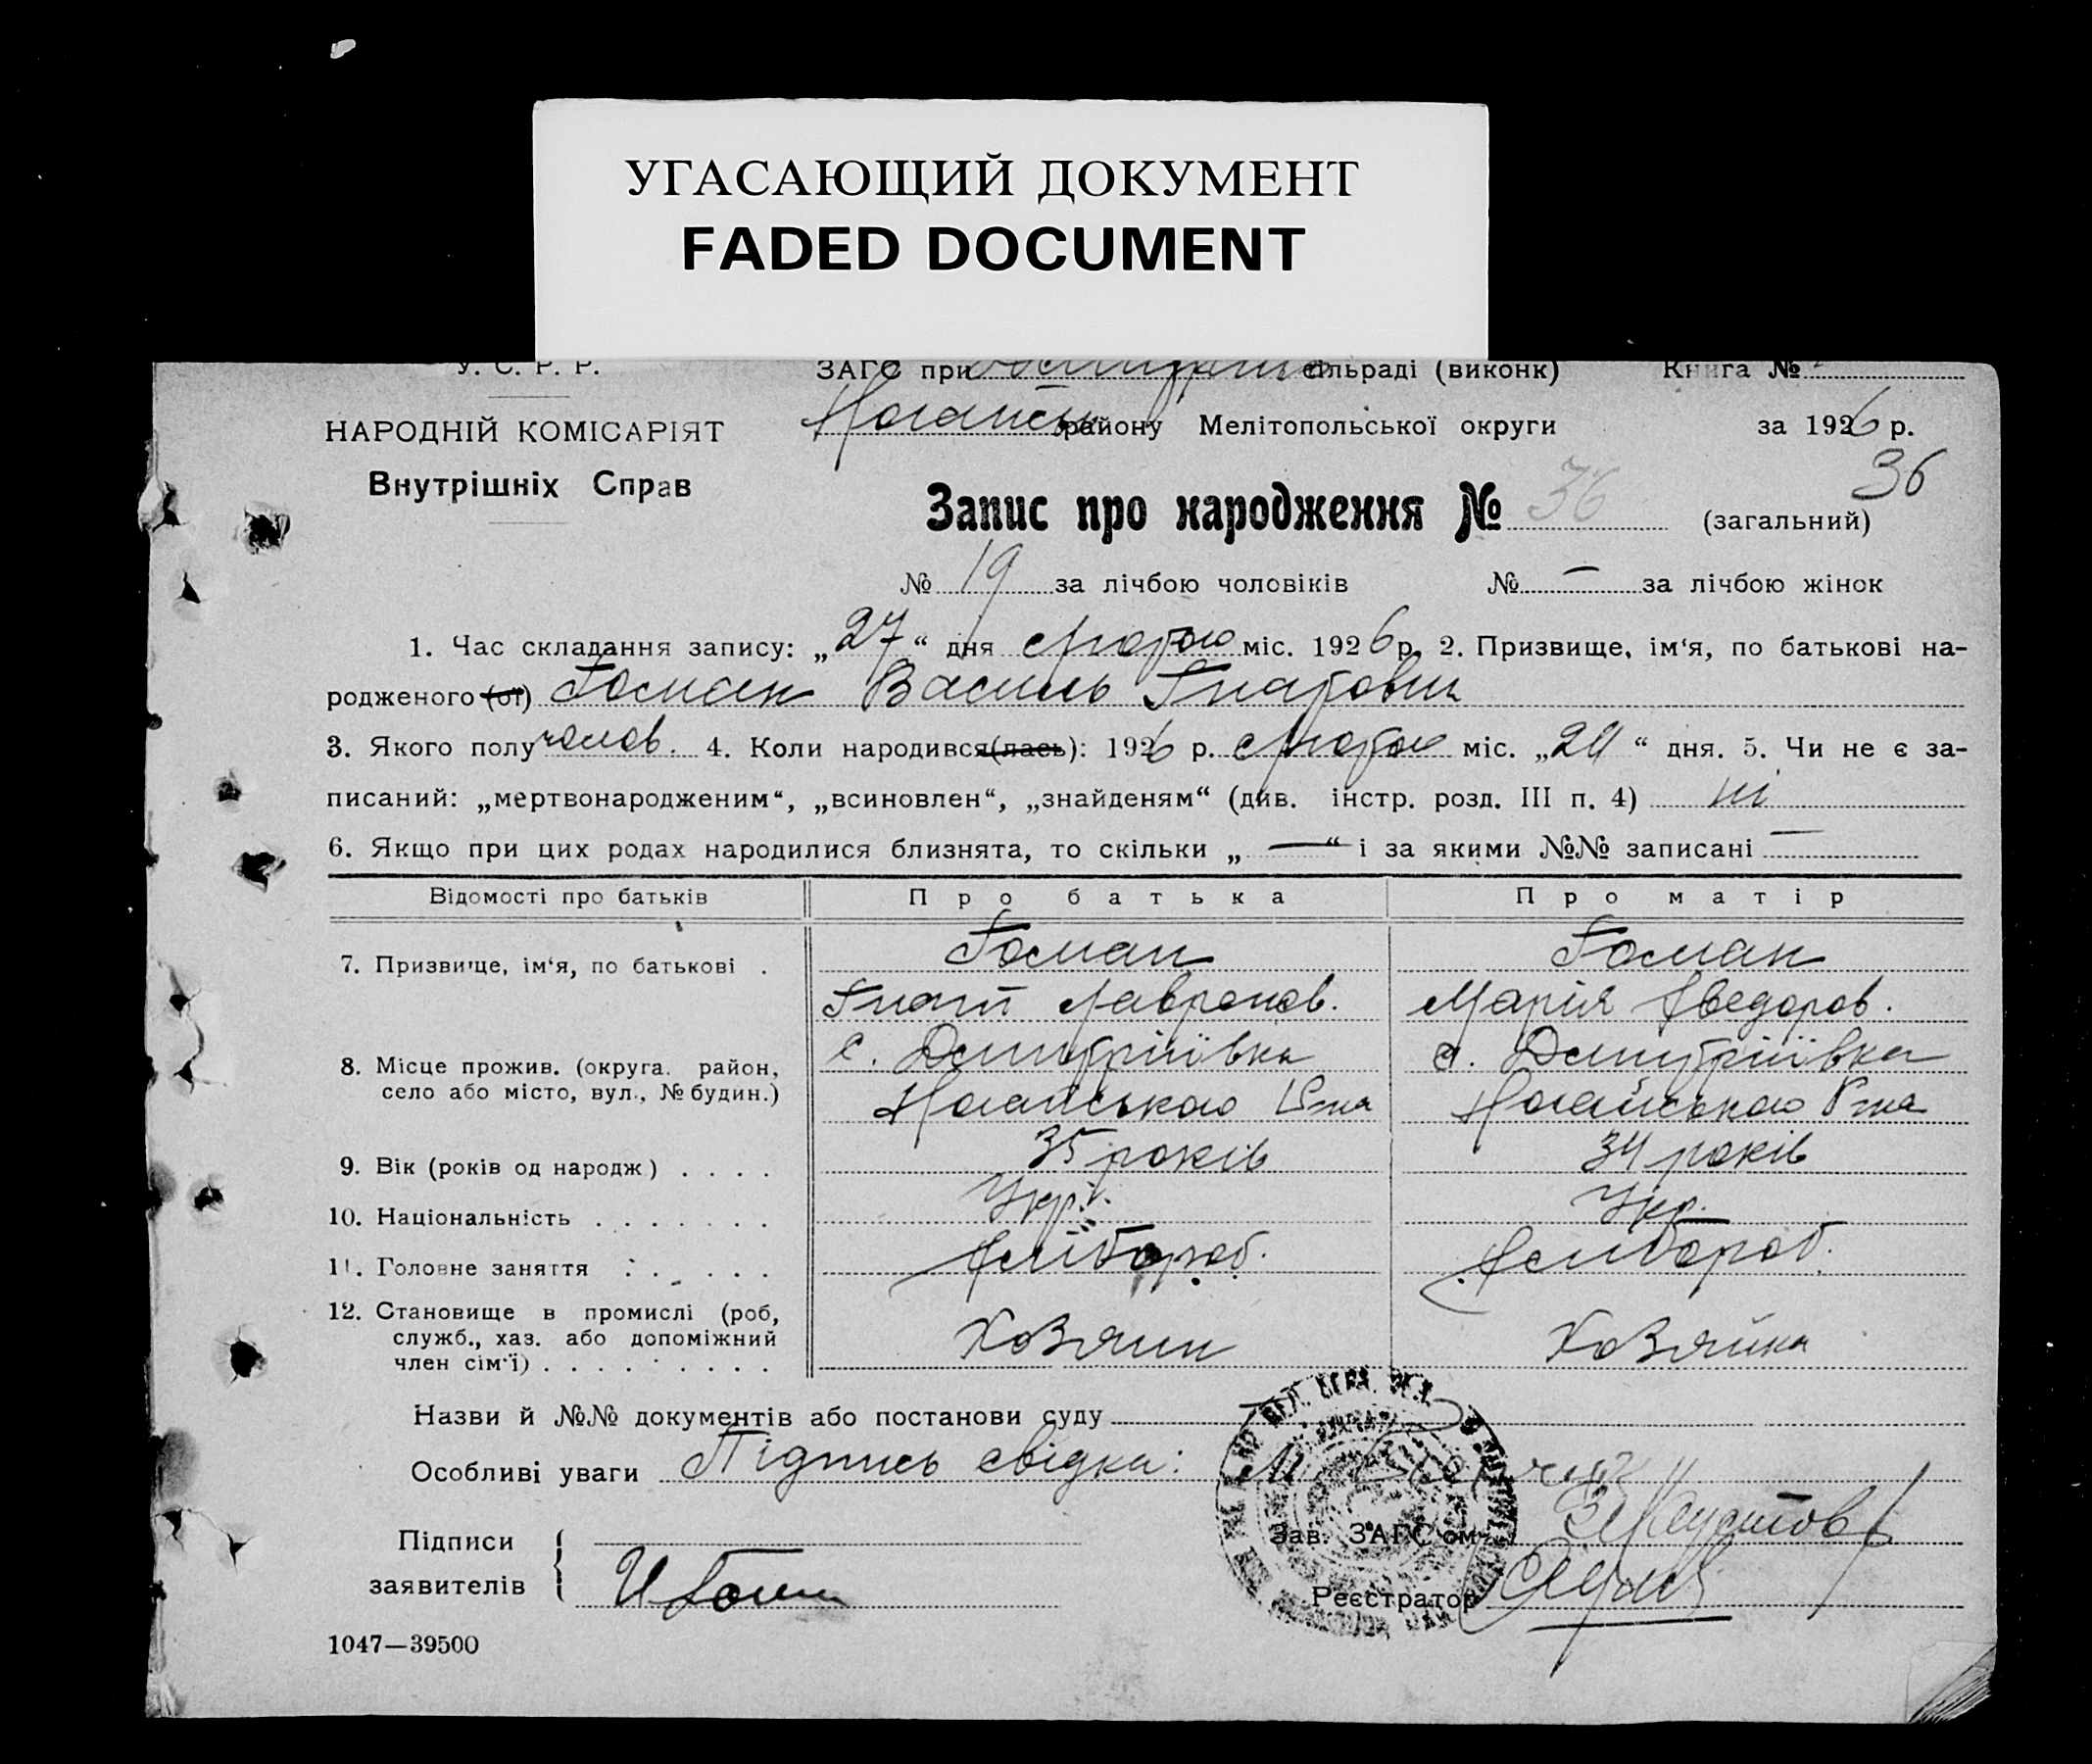 УГАСАЮЩИЙ ДОКУМЕНТ
FADED DOCUMENT
У. С. Р. Р. ЗАГС при сільраді (виконк) Книга №
НАРОДНІЙ КОМІСАРІЯТ Ногайськ району Мелітопольської округи за 1926 р.
Внутрішніх Справ 36
Запис про народження № 36 (загальний)
№ 19 за лічбою чоловіків № — за лічбою жінок
1. Час складання запису: „27“ дня лютого міс. 1926 р. 2. Призвище, ім‘я, по батькові на-
родженого (ої) Гоман Василь Гнатович
3. Якого полу чолов. 4. Коли народився(лась): 1926 р. лютого міс. „24“ дня. 5. Чи не є за-
писаний: „мертвонародженим“, „всиновлен“, „знайденям“ (див. інстр. розд. III п. 4) ні
6. Якщо при цих родах народилися близнята, то скільки „ — “ і за якими №№ записані —
Відомості про батьків Про батька Про матір
7. Призвище, ім‘я, по батькові . Гоман Гоман
Гнат Лавронов. Марія Хведоров.
8. Місце прожив. (округа. район, с. Дмитріївка с. Дмитріївка
село або місто, вул., № будин.) Ногайського Р-на Ногайського Р-на
9. Вік (років од народж) . . . . 35 років 34 років
10. Національність . . . . . . . Укр. Укр.
11. Головне заняття . . . . . . Хлібороб. Хлібороб.
12. Становище в промислі (роб, служб., хаз. або допоміжний член сім‘ї) . . . . . . . . . Хозяин Хозяйка
Назви й №№ документів або постанови суду
Особливі уваги Підпись свідка:
Підписи Зав. ЗАГС‘ом
заявителів Реєстратор
1047—39500